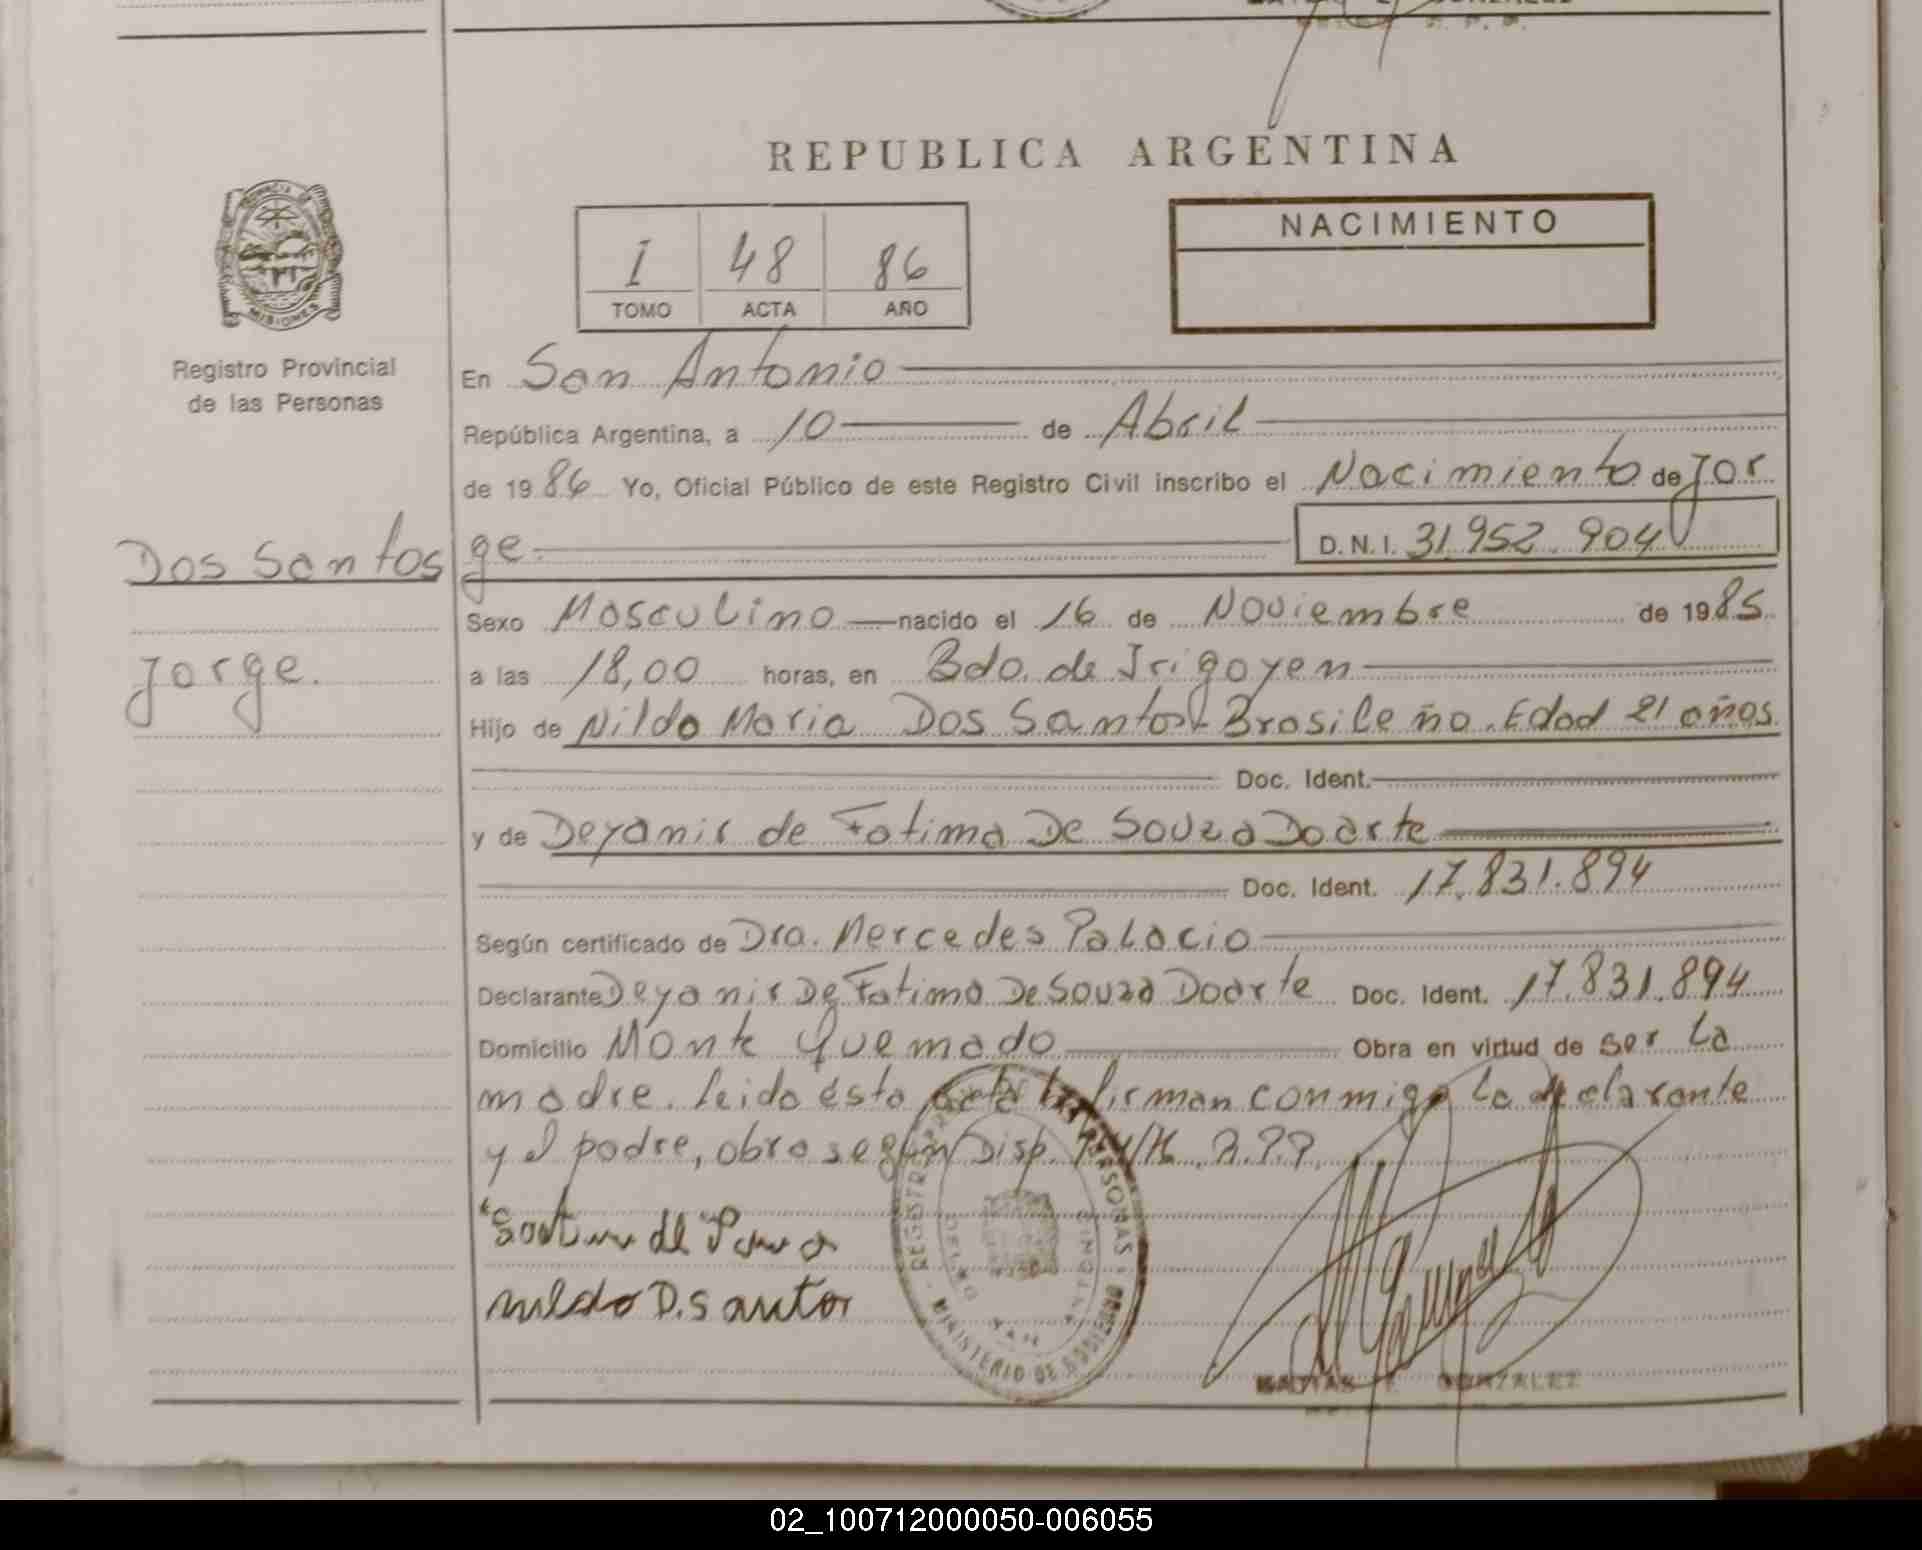 REPUBLICA ARGENTINA
NACIMIENTO
I 48 86
TOMO ACTA AÑO
MISIONES
Registro Provincial
de las Personas
Dos Santos
Jorge.
En San Antonio
República Argentina, a 10 de Abril
de 1986 Yo, Oficial Público de este Registro Civil inscribo el Nacimiento de Jor
ge. D.N.I. 31.952.904
Sexo Masculino nacido el 16 de Noviembre de 1985
a las 18,00 horas, en Bdo. de Irigoyen
Hijo de Nildo Maria Dos Santos Brasileño. Edad 21 años
Doc. Ident.
y de Deyanir de Fatima De Souza Doarte
Doc. Ident. 17.831.894
Según certificado de Dra. Mercedes Palacio
Declarante Deyanir De Fatima De Souza Doarte Doc. Ident. 17.831.894
Domicilio Monte Quemado Obra en virtud de ser la
madre. Leido ésta acta la firman conmigo la declarante
y el padre, obra según Disp. R.P.P.
nildo D. Santos
REGISTRO PERSONAS
MINISTERIO DE GOBIERNO
MATIAS GONZALEZ
02_100712000050-006055